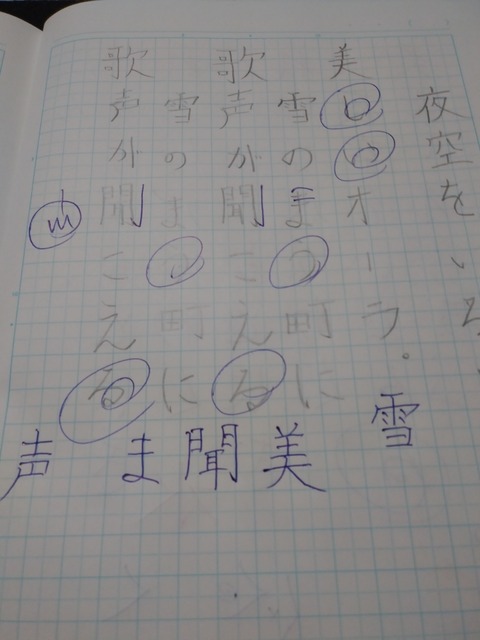 夜空をいろ
美しいオーラ。
雪のまう町に
歌声が聞こえる
雪のまう町に
歌声が聞こえる
雪
美
聞
ま
声